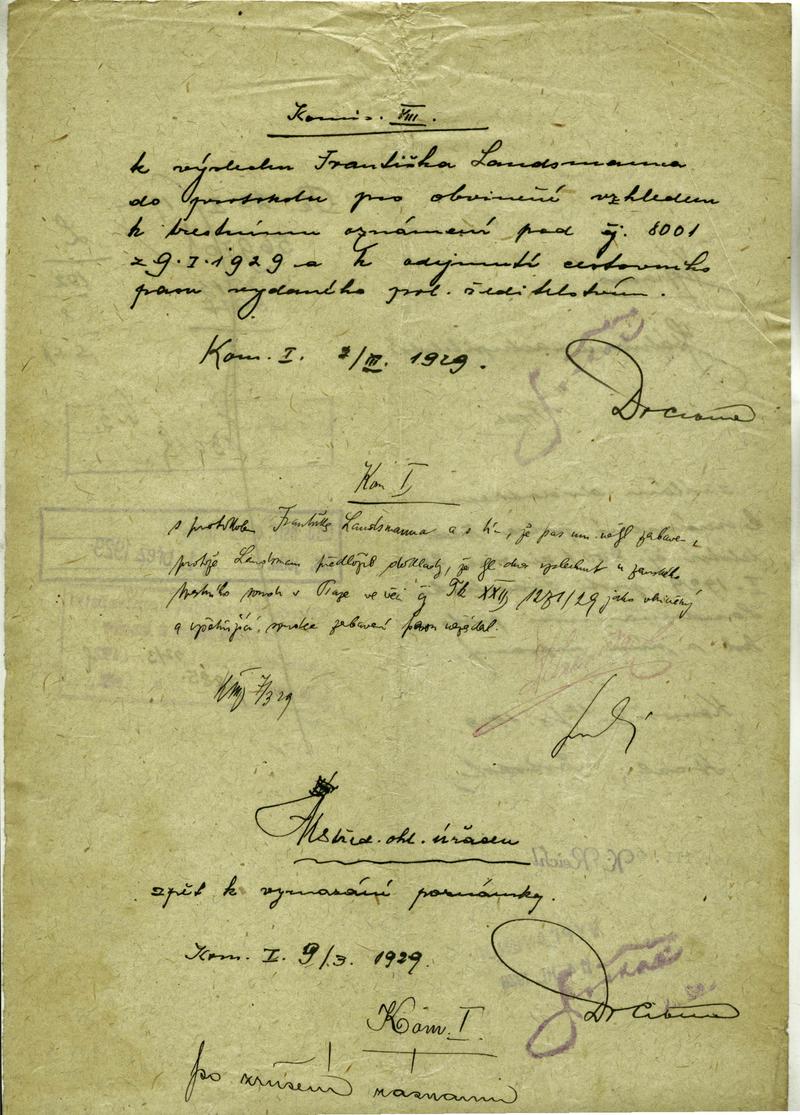 Komis. VIII.
k výslechu Františka Landsmanna
do protokolu pro obvinění vzhledem
k trestnímu oznámení pod čj. 8001
z 9.I.1929 a k odejmutí cestovního
pasu vydaného pol. ředitelstvím.
Kom. I. 2/III. 1929.
Kom I
s protokolem Františka Landsmanna a s tím, že pas mu nebyl zabaven,
protože Landsmann předložil doklady, že byl dnes vyslechnut u zemského
trestního soudu v Praze ve věci čj Tk XXIII 1281/29 jako obviněný
a vyšetřující soudce zabavení pasu nežádal.
VIII 7/3 29
Střed. ohl. úřadu
zpět k vymazání poznámky.
Kom. I. 9/3. 1929.
Kom. I.
po zrušení záznamu